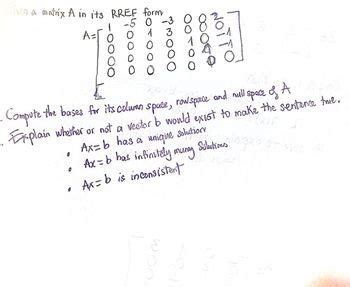 a matrix A in its RREF form
A= [ 1 -5 0 -3 0 0 2
0 0 1 3 0 0 0
0 0 0 0 1 0 -1
0 0 0 0 0 1 -1
0 0 0 0 0 0 0 ]
. Compute the bases for its column space, row space and null space of A
. Explain whether or not a vector b would exist to make the sentence true.
• Ax=b has a unique solution
• Ax=b has infinitely many solutions
• Ax=b is inconsistent